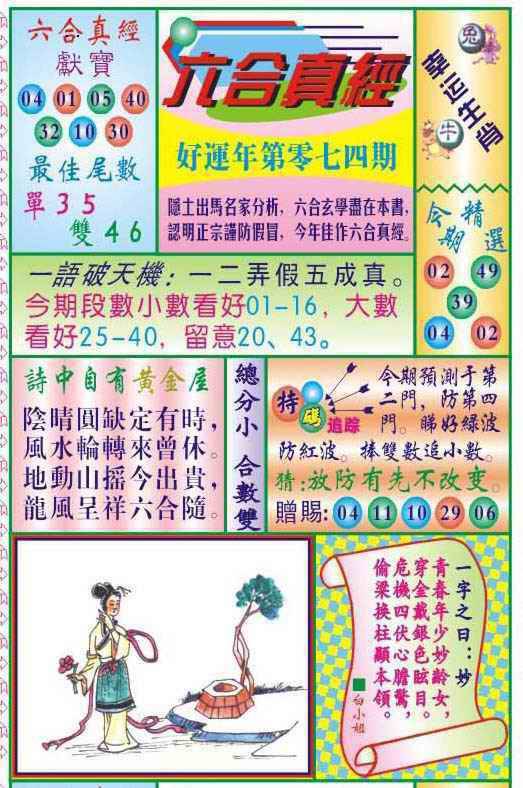 六合真經
獻寶
04 01 05 40
32 10 30
最佳尾數
單35
雙46
六合真經
好運年第零七四期
隱士出馬名家分析，六合玄學盡在本書，
認明正宗謹防假冒，今年佳作六合真經。
幸运生肖
兔
牛
今期精選
02 49
39
04 02
一語破天機：一二弄假五成真。
今期段數小數看好01-16，大數
看好25-40，留意20、43。
詩中自有黃金屋
陰晴圓缺定有時，
風水輪轉來曾休。
地動山摇今出貴，
龍風呈祥六合隨。
總分小 合數雙
特碼追踪
今期預測于第
二門，防第四
門。睇好綠波
防紅波。捧雙數追小數。
猜：放防有先不改变。
贈賜：04 11 10 29 06
一字之曰：妙
青春年少妙齡女，
穿金戴銀色眩目。
危機四伏心膽驚，
偷梁换柱顯本領。
白小姐